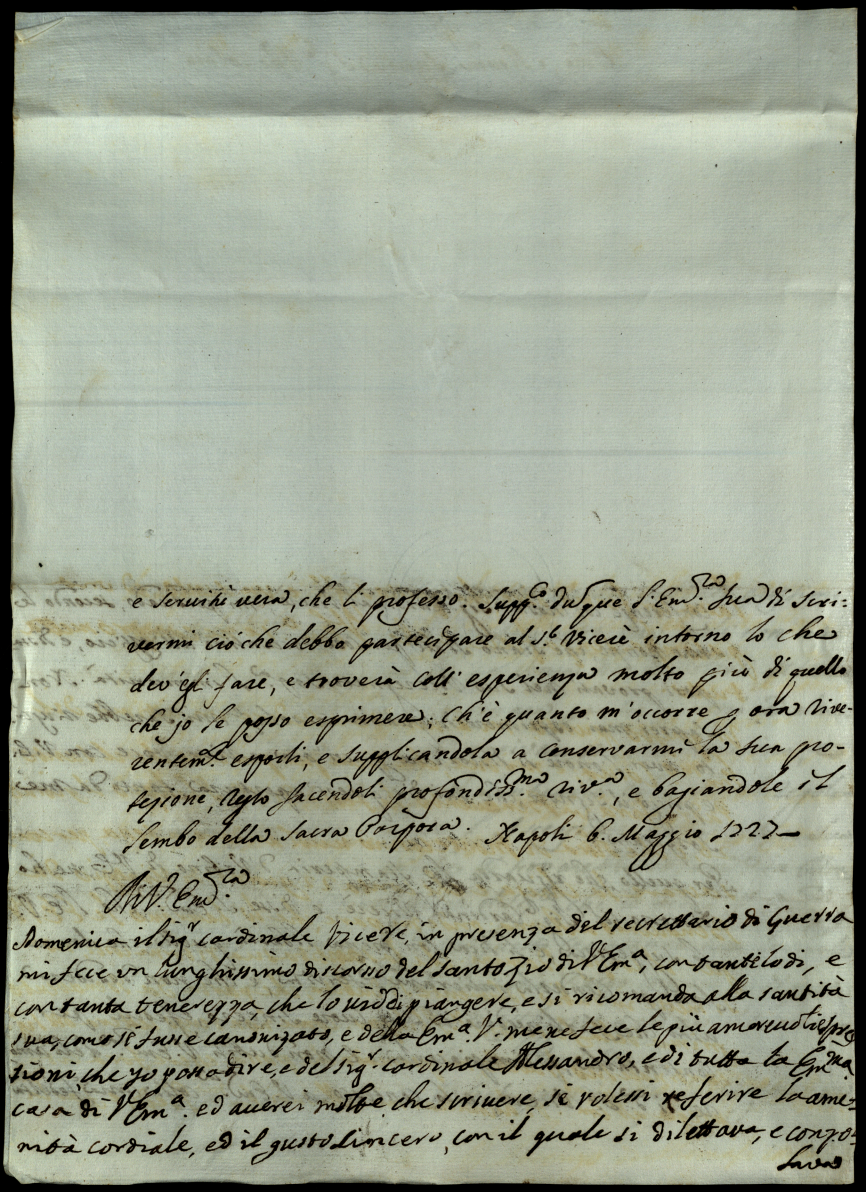 e servitù vera, che li professo. Supp.co dunque l'Em.za Sua di scri-
vermi ciò che debbo partecipare al S.r Vicerè intorno lo che
dev'egli fare, e troverà coll'esperienza molto più di quello
che jo le posso esprimere; Ch'è quanto m'occorre p ora rive-
rentem.te esporli, e supplicandola a conservarmi la sua pro-
tezione, resto facendoli profondiss.ma riv.a, e bagiandole il
lembo della Sacra Porpora. Napoli 6. Maggio 1727
Di V. Em.za
Domenica il Sig.r cardinale Vicere, in presenza del secrettario di Guerra
mi fece un lunghissimo discorso del santo Zio di V Em.a, con tante lodi, e
con tanta tenerezza, che lo viddi piangere, e si ricomanda alla santità
sua, come si fusse canonizato, e della Em.a V. me ne fece le più amorevoli espre
sioni che yo possa dire, e del sig.r cardinale Alessandro, e di tutta la Em.ma
casa di V Em.a. ed averei molte che scrivere, se volessi referire la ame-
nità cordiale, ed il gusto sincero, con il quale si dilettava, e conso-
lava